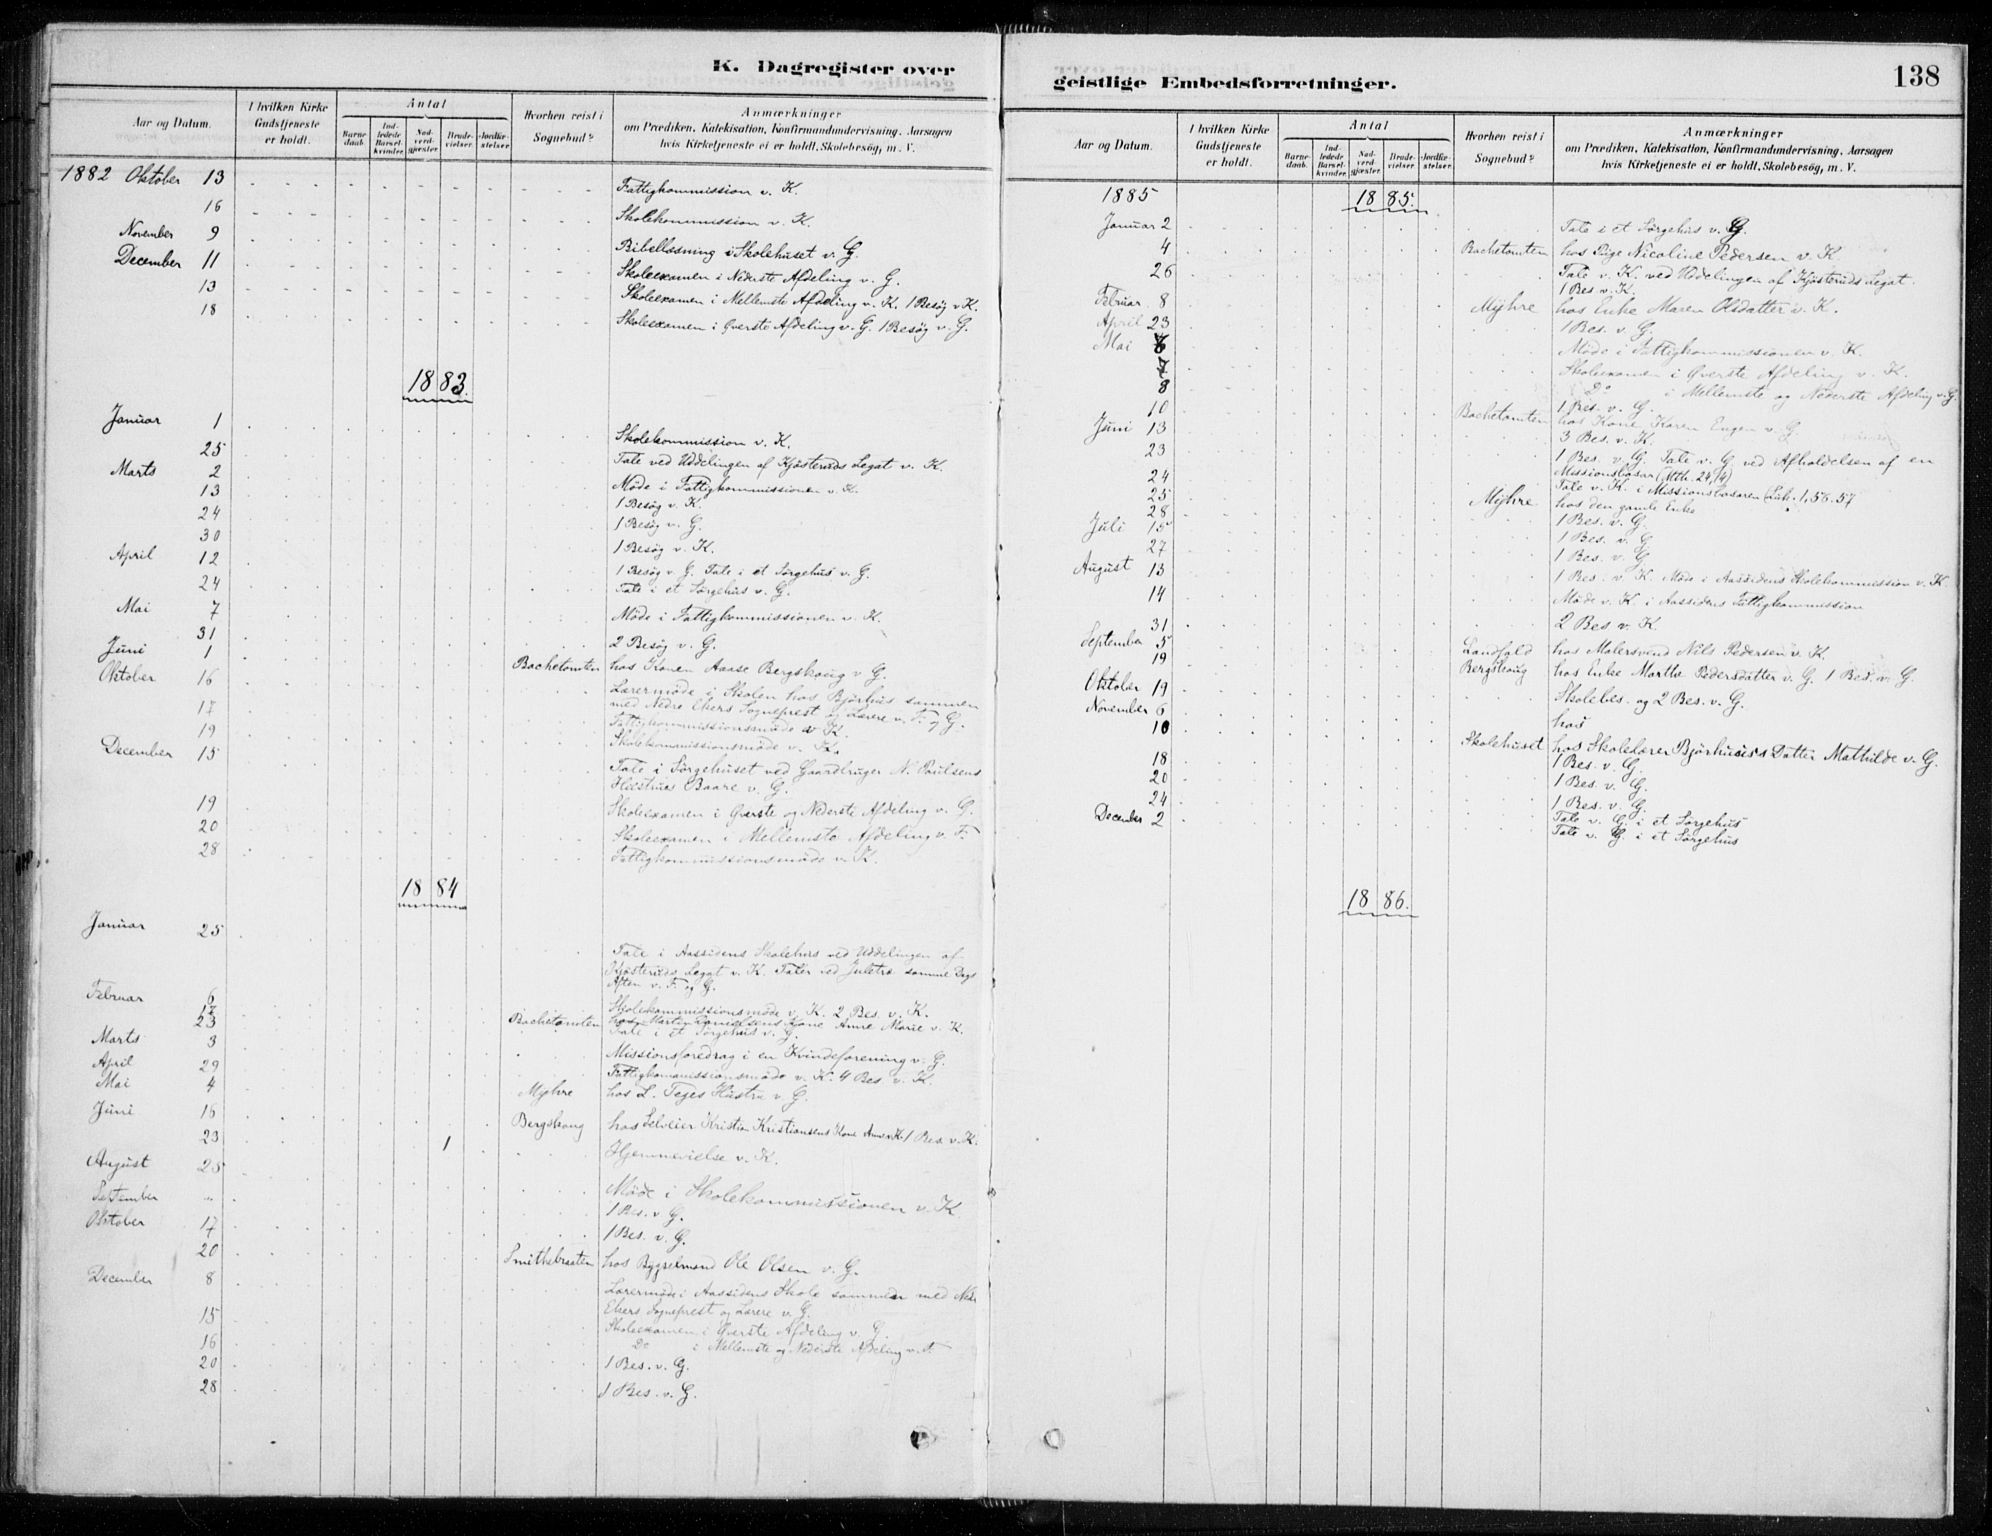 K. Dagregister over
Aar og Datum.
I hvilken Kirke Gudstjeneste er holdt.
Antal
Barnedaab.
Indledede Barselkvinder.
Nadverdgjester.
Brudevielser.
Jordfæstelser.
Hvorhen reist i Sognebud?
Anmærkninger
om Prædiken, Katekisation, Konfirmandundervisning, Aarsagen
hvis Kirketjeneste ei er holdt, Skolebesög, m. V.
1882 Oktober 13 Fattigkommission v. K.
16 Skolekommission v. K.
November 9 Bibellæsning i Skolehuset v. G.
December 11 Skoleexamen i Nederste Afdeling v. G.
13 Skoleexamen i Mellemste Afdeling v. K. 1 Besög v. K.
18 Skoleexamen i Øverste Afdeling v. G. 1 Besög v. G.
1883.
Januar 1 Skolekommission v. K.
25 Tale ved Uddelingen af Kjösteruds Legat v. K.
Marts 2 Möde i Fattigkommissionen v. K.
13 1 Besög v. K.
24 1 Besög v. G.
30 1 Besög v. K.
April 12 1 Besög v. G. Tale i et Sörgehus v. G.
24 Tale i et Sörgehus v. G.
Mai 7 Möde i Fattigkommissionen v. K.
31 2 Besög v. G.
Juni 1 Bachetomten hos Konen Aaase Bergskaug v. G.
Oktober 16 Lærermöde i Skolen hos Bjørhus sammen
med Nedre Ekers Sogneprest og Lærere v. F. og G.
17 Fattigkommissionsmöde v K.
19 Skolekommissionsmöde v. K.
December 15 Tale i Sörgehuset ved Gaardbruger N. Paulsens
Hustrus Baare v. G.
19 Skoleexamen i Øverste og Nederste Afdeling v. G.
20 Skoleexamen i Mellemste Afdeling v. F.
28 Fattigkommissionsmöde v. K.
1884
Januar 25 Tale i Aassidens Skolehus ved Uddelingen af
Kjösteruds Legat v. K. Taler ved Juletræ samme Dags
Aften v. F. og G.
Februar 6 Skolekommissionsmöde v. K. 2 Bes. v. K.
17 Bachetomten hos Martin Danielsens Kone Anne Marie v. K.
23 Tale i et Sörgehus v. G.
Marts 3 Missionsforedrag i en Kvindeforening v. G.
April 29 Fattigkommissionsmöde v. K. 4 Bes. v. K.
Mai 4 Myhre hos L. Teges Hustru v. G.
Juni 16 Bergskaug hos Selveier Kristian Kristiansens Kone Anne v. K. 1 Bes. v. K.
23 1 Hjemmevielse v. K.
August 25 Möde i Skolekommissionen v. K.
September „ 1 Bes. v G.
Oktober 17 1 Bes. v. G.
20 Smithebraaten hos Ole Olsen v. G.
December 8 Lærermöde i Aassidens Skole sammen med Nedr
Ekers Sogneprest og Lærere v. G.
15 Skoleexamen i Øverste Afdeling v. G.
16 Do i Mellemste og Nederste Afdeling v. F.
20 1 Bes. v. G.
28 1 Bes. v. G.
geistlige Embedsforretninger.
138
Aar og Datum.
I hvilken Kirke Gudstjeneste er holdt.
Antal
Barnedaab.
Indledede Barselkvinder.
Nadverdgjester.
Brudevielser.
Jordfæstelser.
Hvorhen reist i Sognebud?
Anmærkninger
om Prædiken, Katekisation, Konfirmandundervisning, Aarsagen
hvis Kirketjeneste ei er holdt, Skolebesög, m. V.
1885 1885.
Januar 2 Tale i et Sörgehus v. G.
4 Bachetomten hos Pige Nicoline Pedersen v. K.
26 Tale v. K. ved Uddelingen af Kjösteruds Legat.
1 Bes v. K.
Februar 8 Myhre hos Enke Maren Olsdatter v. K.
April 23 1 Bes. v. G.
Mai 6 Möde i Fattigkommissionen v. K.
7 Skoleexamen i Øverste Afdeling v. K.
8 Do i Mellemste og Nederste Afdeling v. G.
10 1 Bes. v. G.
Juni 13 Bachetomten hos Kone Karen Engen v. G.
3 Bes. v. K.
23 1 Bes. v. G. Tale v. G. ved Afholdelsen af en
Missionsbasar (Mth. 24, 14)
24 Tale v. K. i Missionsbasaren (Luk. 1, 56. 57
25 Myhre hos den gamle Enke
28 1 Bes. v. G.
Juli 15 1 Bes. v. G
27 1 Bes. v. G
August 13 1 Bes. v K. Möde i Aassidens Skolekommission v. K
14 Möde v. K. i Aassidens Fattigkommission
31 2 Bes v. K.
September 5 Landfald hos Malersvend Nils Pedersen v. K.
19 Bergskaug hos Enke Marthe Pedersdatter v. G. 1 Bes. v. G.
Oktober 19 Skolebes. og 2 Bes. v. G.
November 6 hos
10 Skolehuset hos Skolelærer Bjørhus's Datter Mathilde v. G.
18 1 Bes. v. G.
20 1 Bes. v. G.
24 1 Bes. v. G.
December 2 Tale v. G. i et Sörgehus
Tale v. G i et Sörgehus
1886.